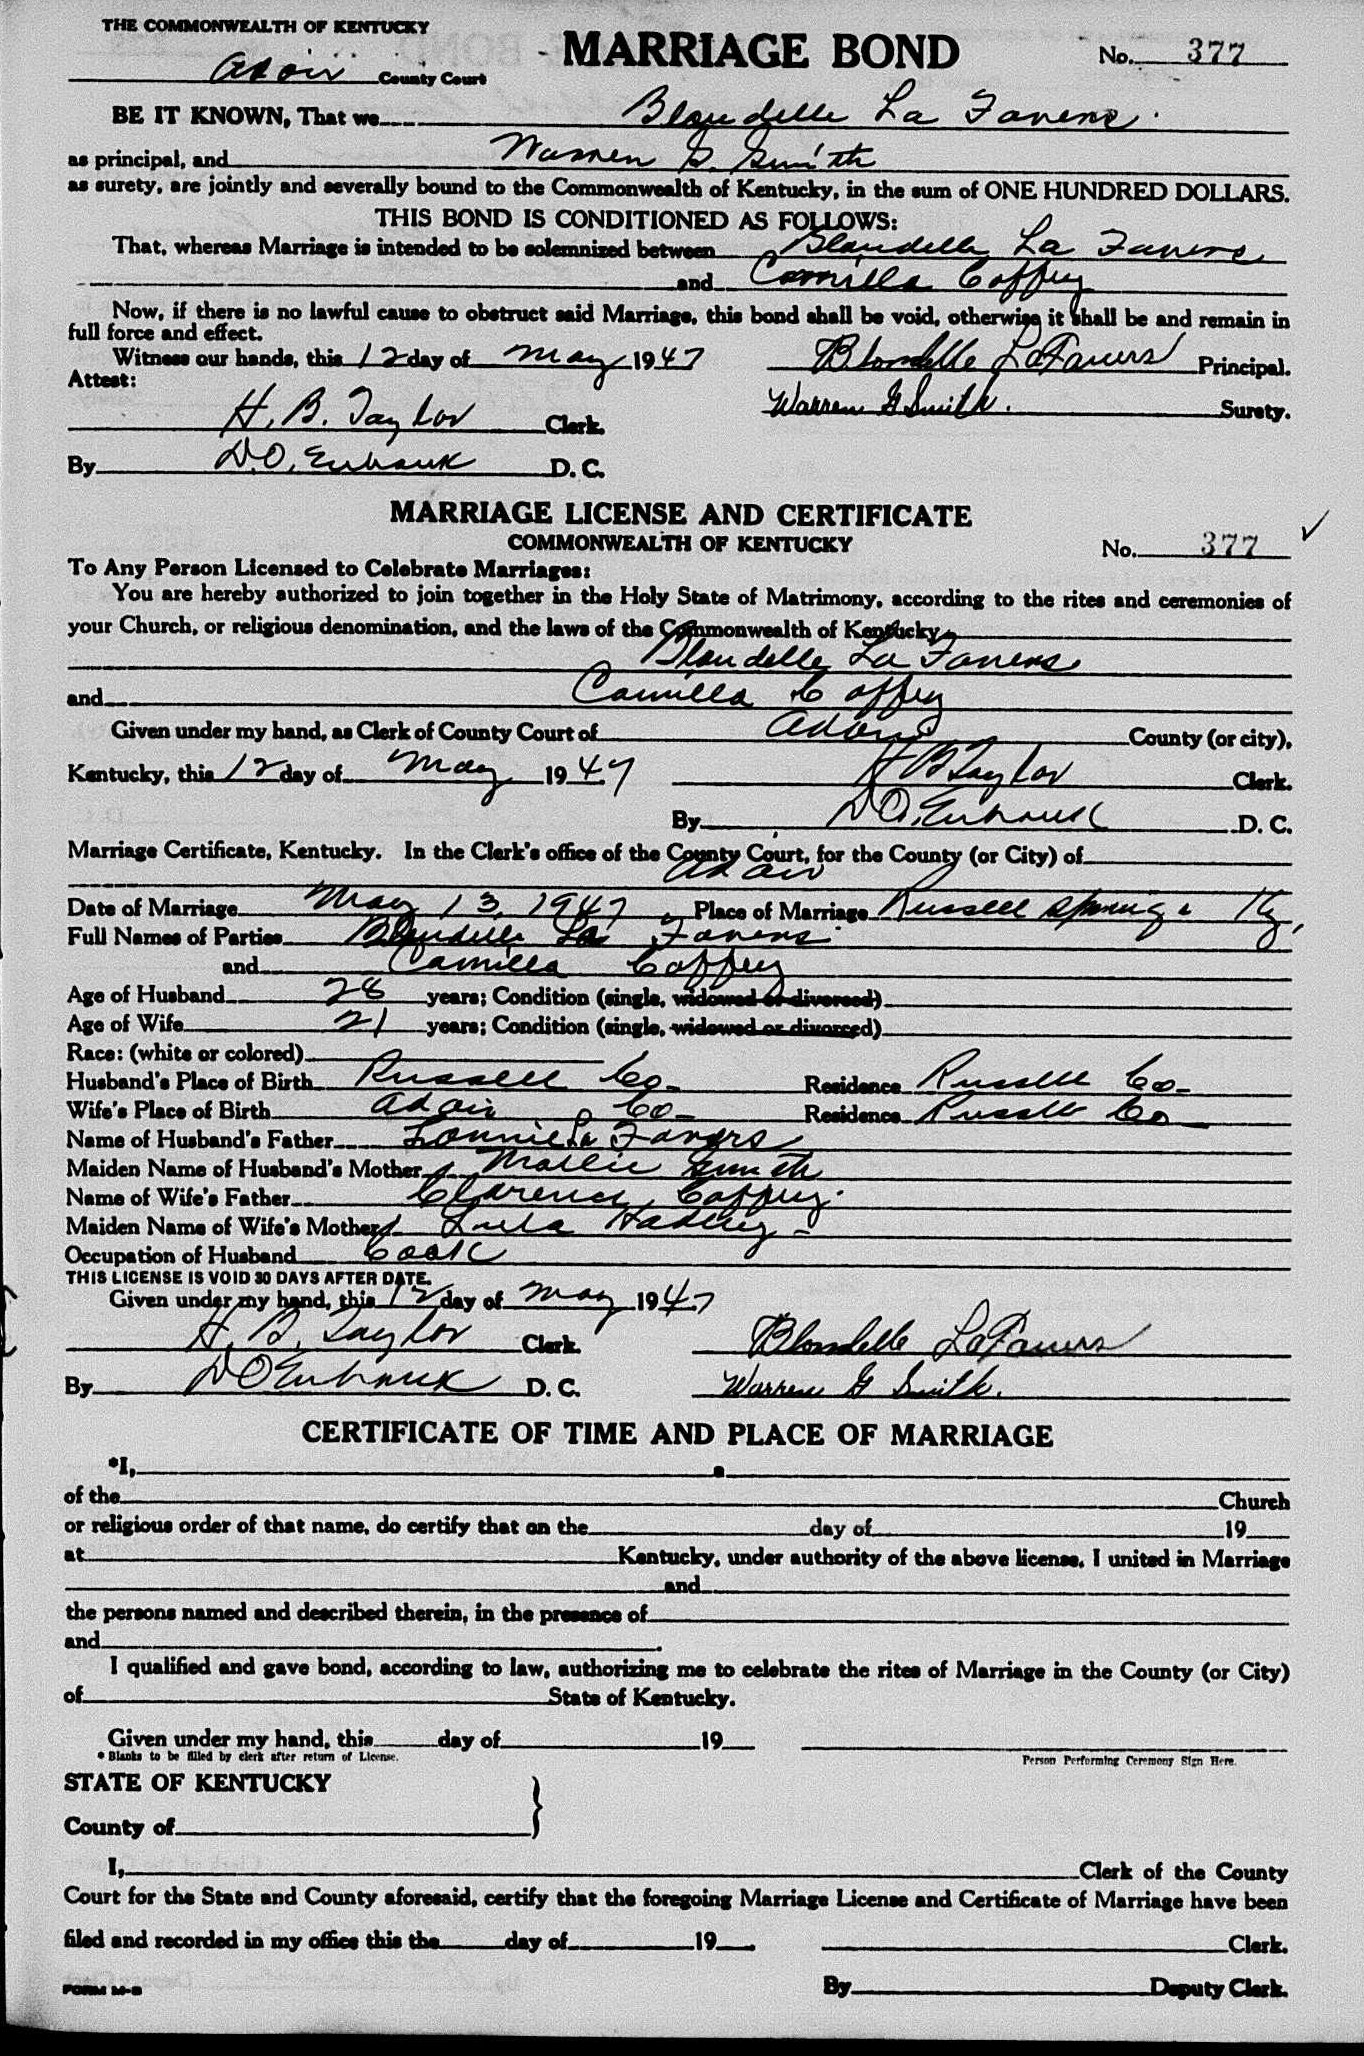 THE COMMONWEALTH OF KENTUCKY
Adair County Court
MARRIAGE BOND
No. 377
BE IT KNOWN, That we Blondelle La Favers
as principal, and Warren G. Smith
as surety, are jointly and severally bound to the Commonwealth of Kentucky, in the sum of ONE HUNDRED DOLLARS.
THIS BOND IS CONDITIONED AS FOLLOWS:
That, whereas Marriage is intended to be solemnized between Blondelle La Favers
and Camilla Coffey
Now, if there is no lawful cause to obstruct said Marriage, this bond shall be void, otherwise it shall be and remain in
full force and effect.
Witness our hands, this 12 day of May 1947 Blondelle LaFavers Principal.
Attest:
Warren G Smith. Surety.
H. B. Taylor Clerk.
By D.O. Eubank D. C.
MARRIAGE LICENSE AND CERTIFICATE
COMMONWEALTH OF KENTUCKY
No. 377
To Any Person Licensed to Celebrate Marriages:
You are hereby authorized to join together in the Holy State of Matrimony, according to the rites and ceremonies of
your Church, or religious denomination, and the laws of the Commonwealth of Kentucky
Blondelle La Favers
and Camilla Coffey
Given under my hand, as Clerk of County Court of Adair County (or city),
Kentucky, this 12 day of May 1947 H B Taylor Clerk.
By D O. Eubank D. C.
Marriage Certificate, Kentucky. In the Clerk's office of the County Court, for the County (or City) of
Adair
Date of Marriage May 13, 1947 Place of Marriage Russell Springs Ky,
Full Names of Parties Blondelle La Favers
and Camilla Coffey
Age of Husband 28 years; Condition (single, widowed or divorced)
Age of Wife 21 years; Condition (single, widowed or divorced)
Race: (white or colored)
Husband's Place of Birth Russell Co- Residence Russell Co-
Wife's Place of Birth Adair Co- Residence Russell Co
Name of Husband's Father Lonnie La Favers
Maiden Name of Husband's Mother Mollie Smith
Name of Wife's Father Clarence Coffey
Maiden Name of Wife's Mother Lula Hadley
Occupation of Husband Cook
THIS LICENSE IS VOID 30 DAYS AFTER DATE.
Given under my hand, this 12 day of May 1947
H. B. Taylor Clerk. Blondelle LaFavers
By D O Eubank D. C. Warren G Smith.
CERTIFICATE OF TIME AND PLACE OF MARRIAGE
*I, ,
of the Church
or religious order of that name, do certify that on the day of 19
at Kentucky, under authority of the above license, I united in Marriage
and
the persons named and described therein, in the presence of
and .
I qualified and gave bond, according to law, authorizing me to celebrate the rites of Marriage in the County (or City)
of State of Kentucky.
Given under my hand, this day of 19
* Blanks to be filled by clerk after return of License.
Person Performing Ceremony Sign Here.
STATE OF KENTUCKY
County of }
I, Clerk of the County
Court for the State and County aforesaid, certify that the foregoing Marriage License and Certificate of Marriage have been
filed and recorded in my office this the day of 19 . Clerk.
FORM M-B
By Deputy Clerk.